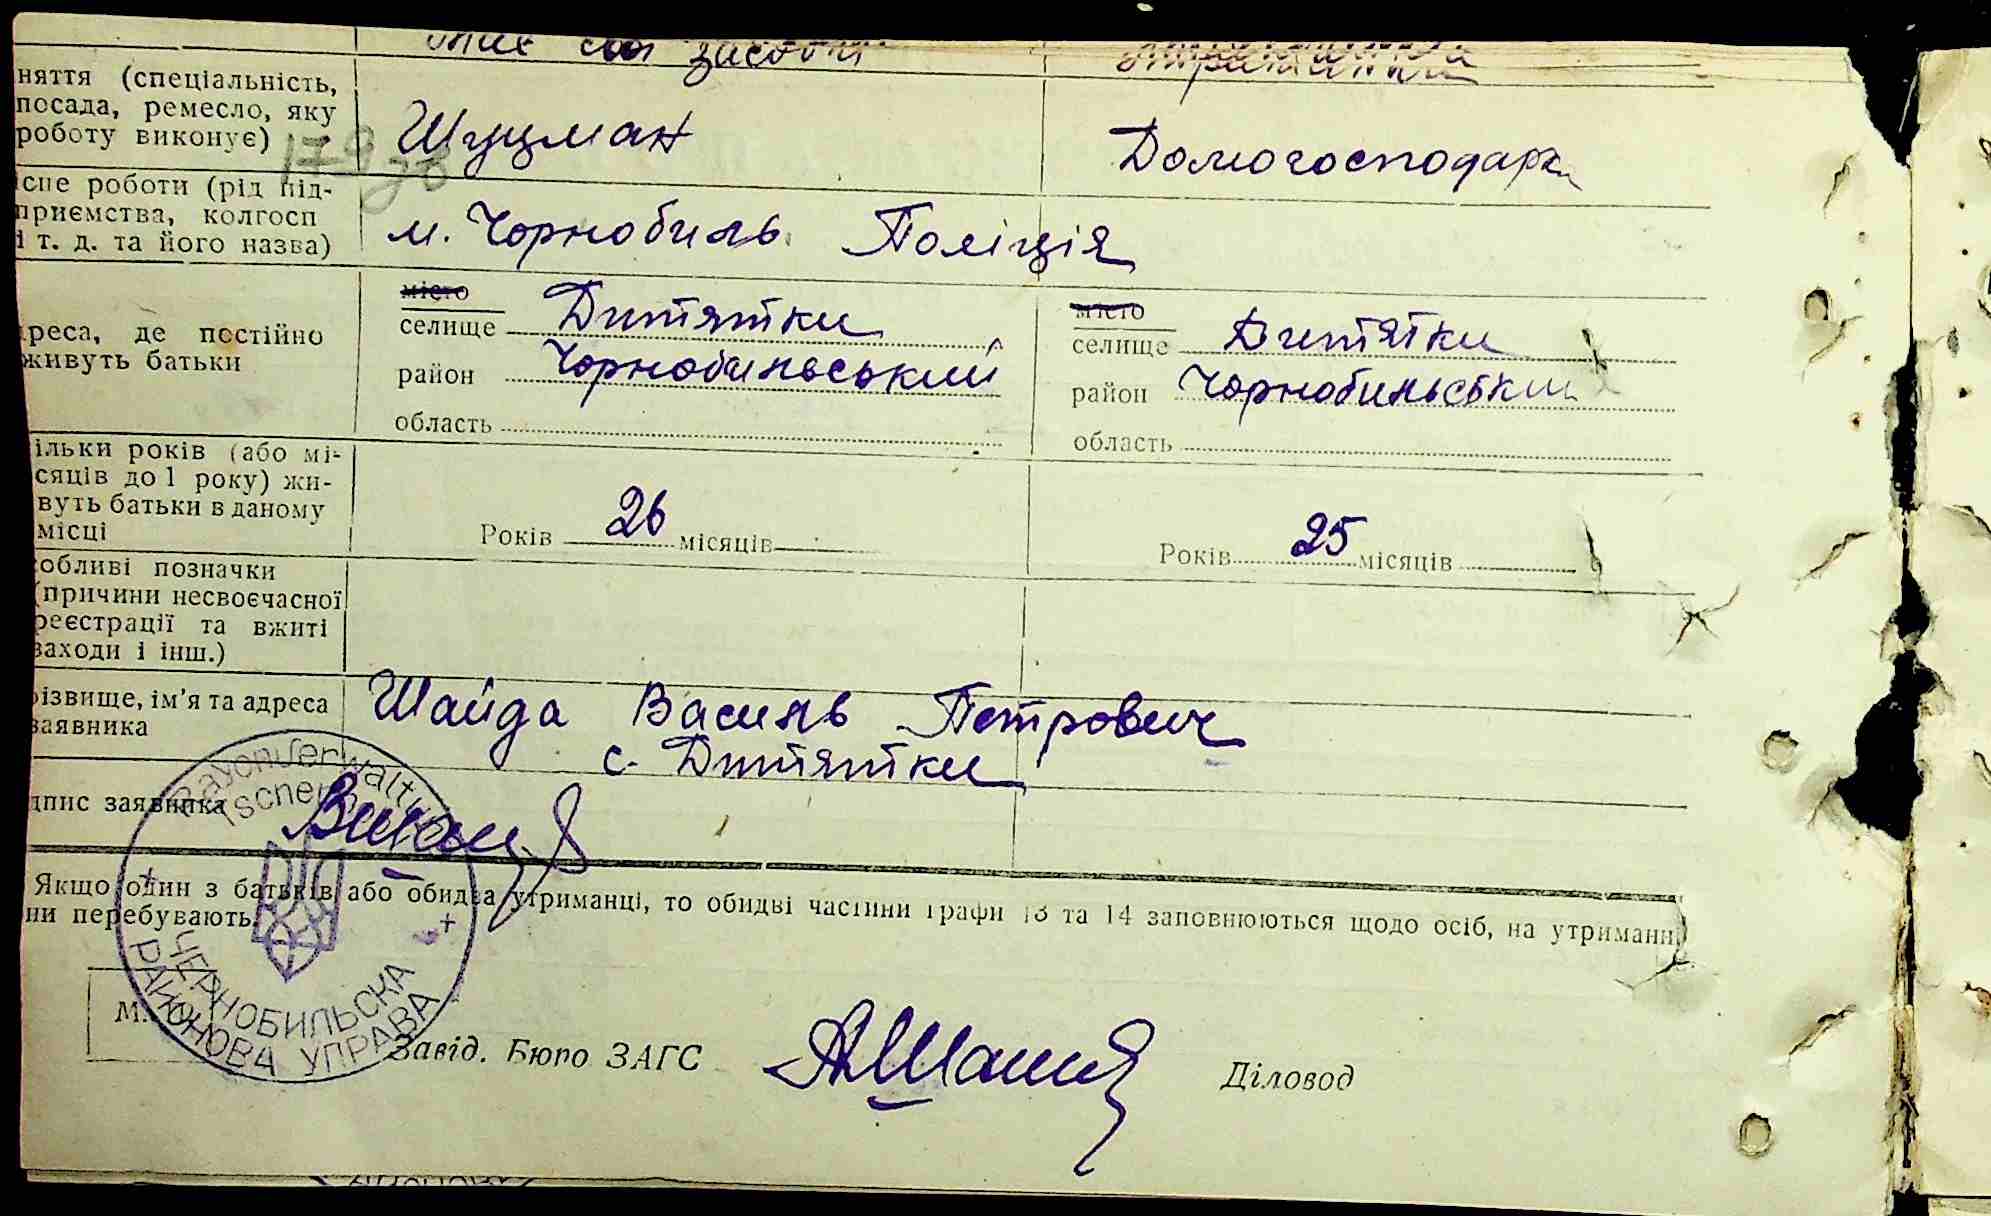 свої засоби
няття (спеціальність,
посада, ремесло, яку
роботу виконує)
Шуцман
Домогосподарка
існе роботи (рід під-
приємства, колгосп
і т. д. та його назва)
м. Чорнобиль Поліція
місто
селище Дитятки
район Чорнобильський
область
місто
селище Дитятки
район Чорнобильський
область
реса, де постійно
живуть батьки
ільки років (або мі-
сяців до 1 року) жи-
вуть батьки в даному
місці
Років 26 місяців
Років 25 місяців
собливі позначки
(причини несвоєчасної
реєстрації та вжиті
заходи і інш.)
різвище, ім'я та адреса
заявника
Шайда Василь Петрович
с. Дитятки
дпис заявника
Якщо один з батьків або обидва утриманці, то обидві частини графи 13 та 14 заповнюються щодо осіб, на утриманні
ни перебувають
Rayonverwaltung
Tschern
ЧЕРНОБИЛЬСКА
РАЙОНОВА УПРАВА
М.
Завід. Бюро ЗАГС
Діловод